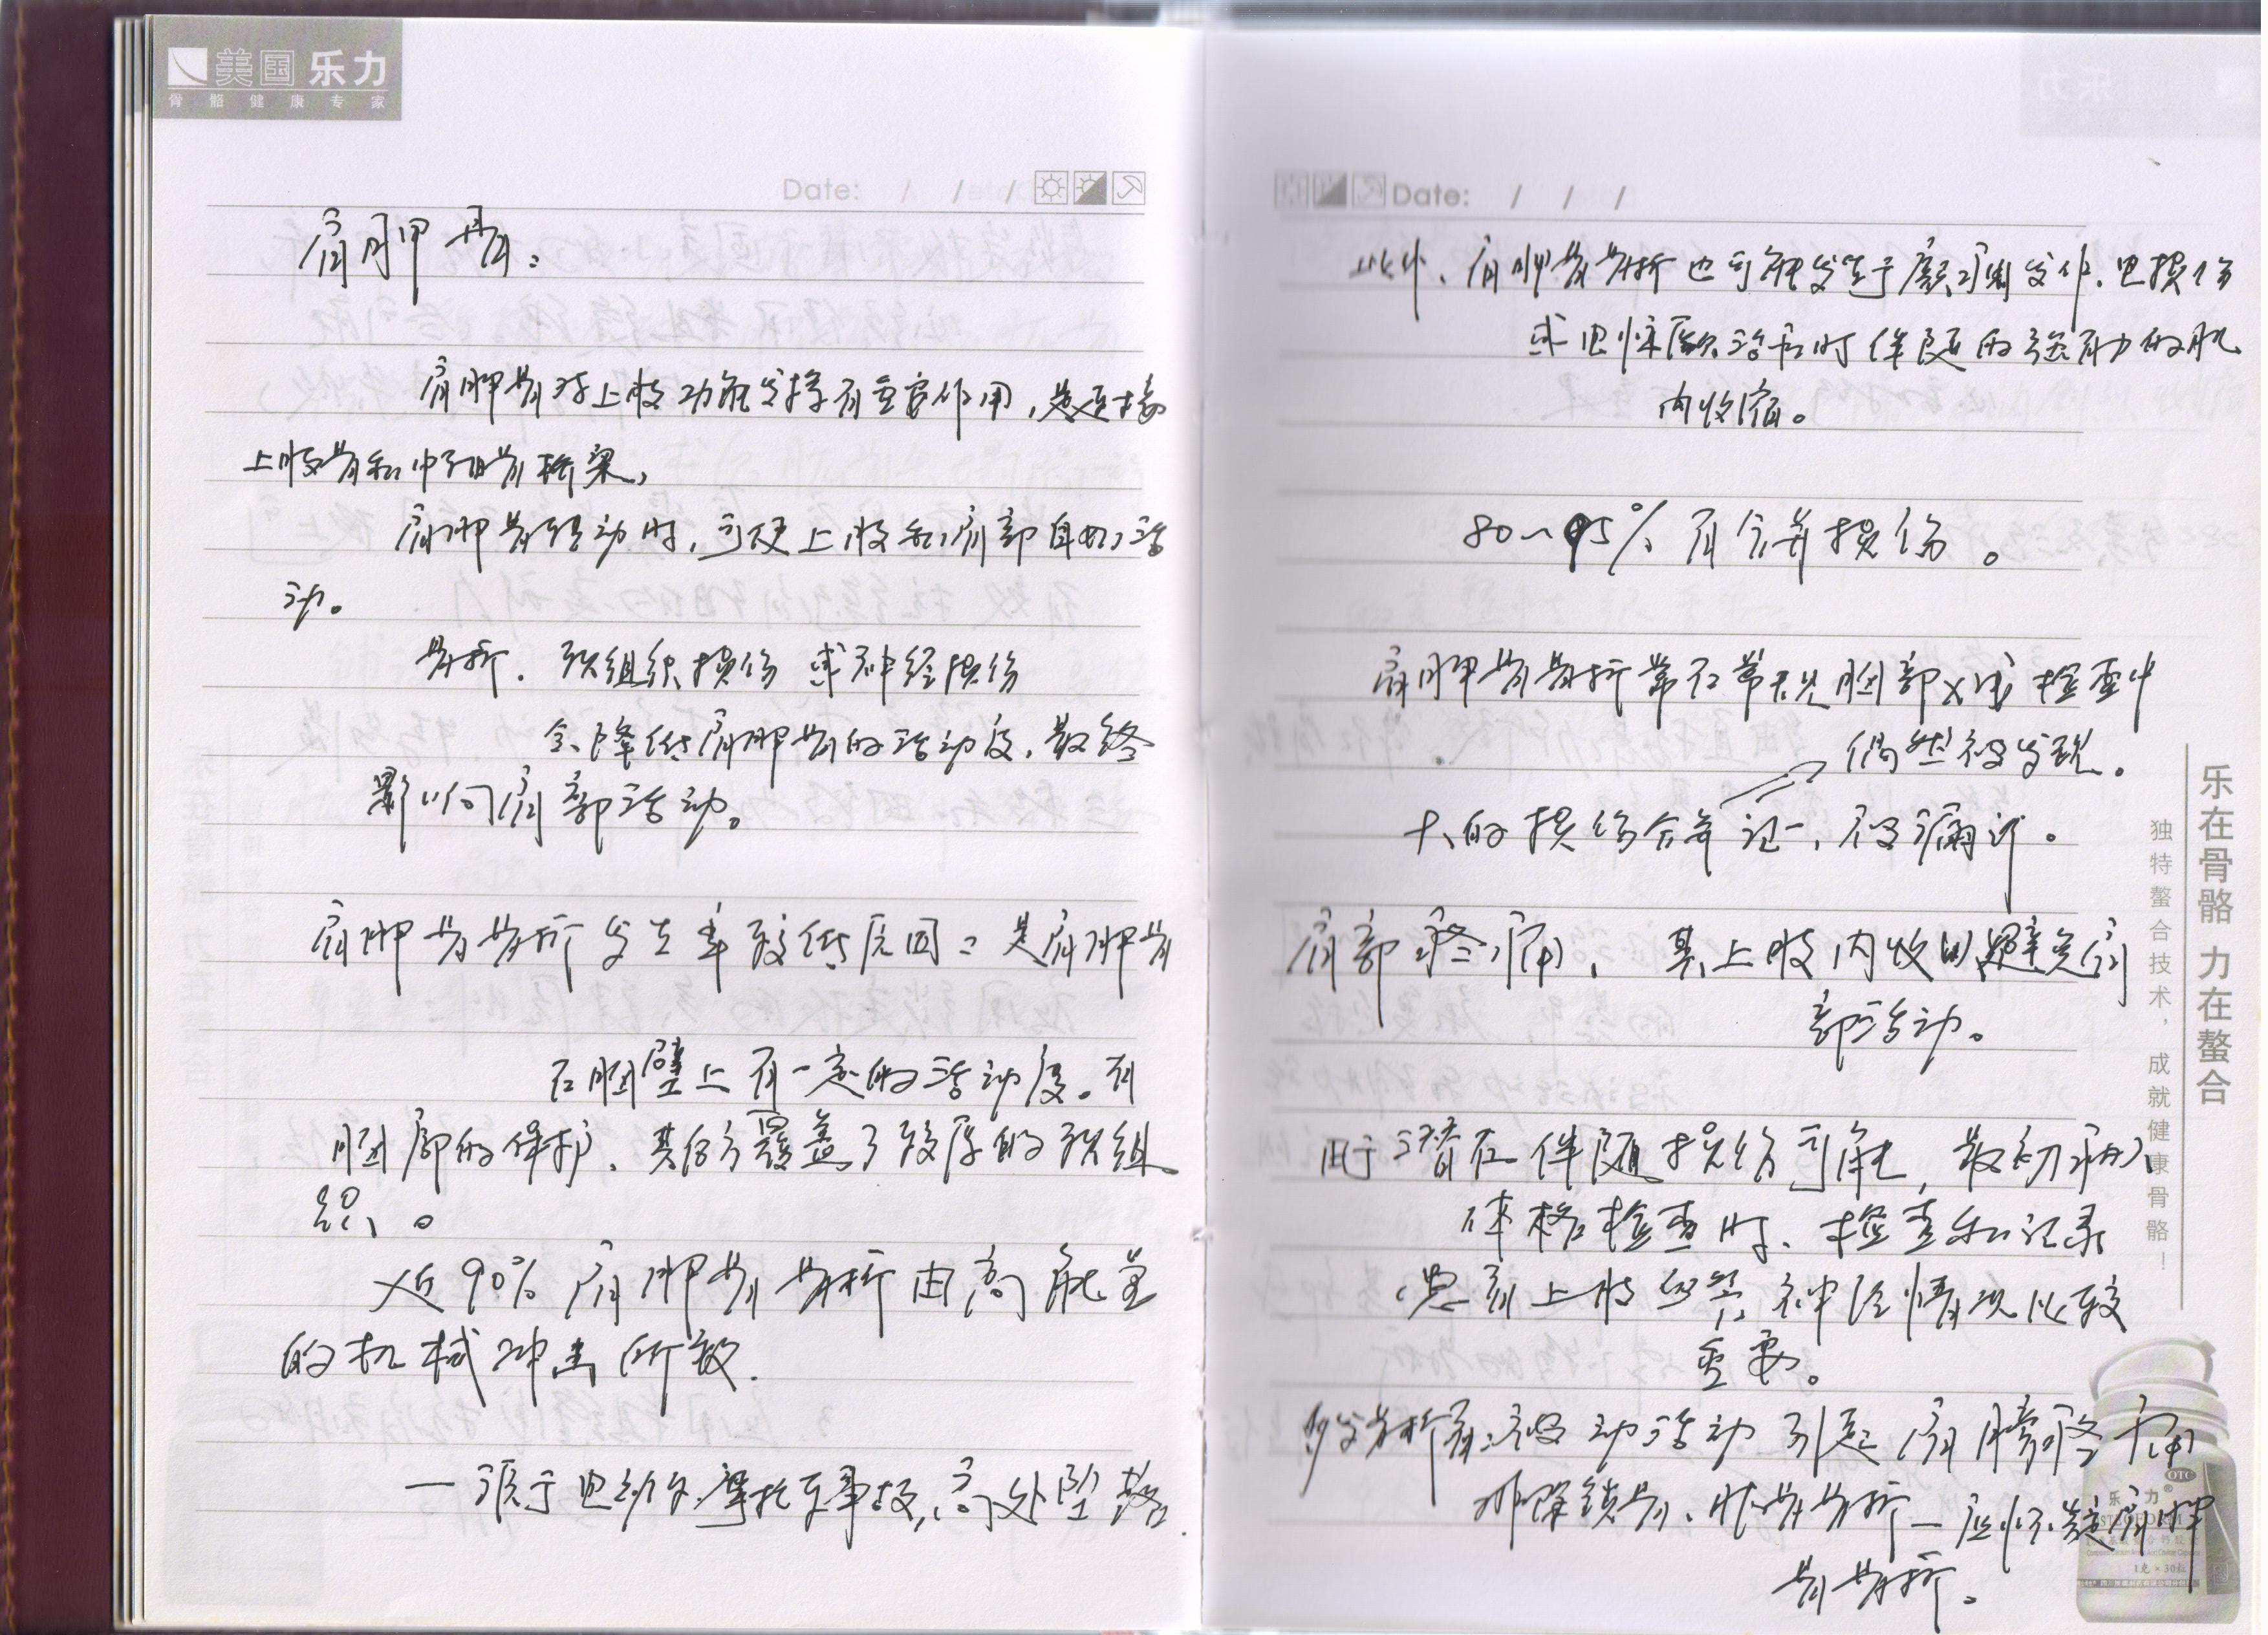 美国 乐力
骨骼健康专家
Date: / / /
肩胛骨:
肩胛骨对上肢功能发挥有重要作用,是连接
上肢骨和中轴骨桥梁,
肩胛骨活动时,可使上肢和肩部自如活
动。
骨折.软组织损伤 或神经损伤
会降低肩胛骨的活动度,最终
影响肩部活动。
肩胛骨骨折发生率较低原因:是肩胛骨
在胸壁上有一定的活动度。有
胸廓的保护、其后方覆盖了较厚的软组
织。
近90%肩胛骨骨折由高能量
的机械冲击所致.
一源于 摩托车事故,高处坠落.
乐力
Date: / / /
此外、肩胛骨骨折也可能发生于癫痫发作.电损伤
或电惊厥治疗时伴随的强有力的肌
肉收缩。
80~95% 有合并损伤。
肩胛骨骨折常在常规胸部X线检查中
偶然被发现。
大的损伤合并 一,不 漏诊。
肩部疼痛、其上肢内收以避免肩
部活动。
由于潜在伴随损伤可能,最初
体格检查时、检查和记录
患者上肢血管神经情况比较
重要。
骨折 动活动引起肩膀疼痛
排除锁骨、肱骨骨折—应怀疑肩胛
骨骨折。
乐在骨骼 力在螯合
独特螯合技术,成就健康骨骼!
OTC
乐力
1克×30粒